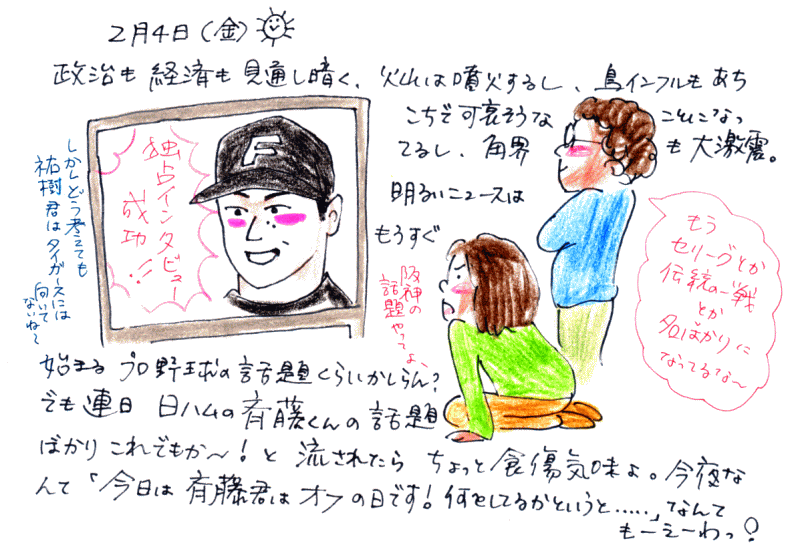 2月4日(金)
政治も経済も見通し暗く、火山は噴火するし、鳥インフルもあち
こちで可哀そうな
ことになっ
てるし、角界
も大激震。
明るいニュースは
もうすぐ
始まる プロ野球の話題くらいかしらん?
でも連日 日ハムの斉藤くんの話題
ばかりこれでもか〜!と 流されたら ちょっと食傷気味よ。今夜な
んて「今日は 斉藤君は オフの日です!何をしてるかというと.....」なんて
もーえーわっ!
F
独占インタビュー
成功!!
しかしどう考えても
祐樹君はタイガースには
向いて
ないね〜
阪神の
話題やってよ、
もう
セリーグとか
伝統の一戦
とか
名ばかりに
なってるな〜